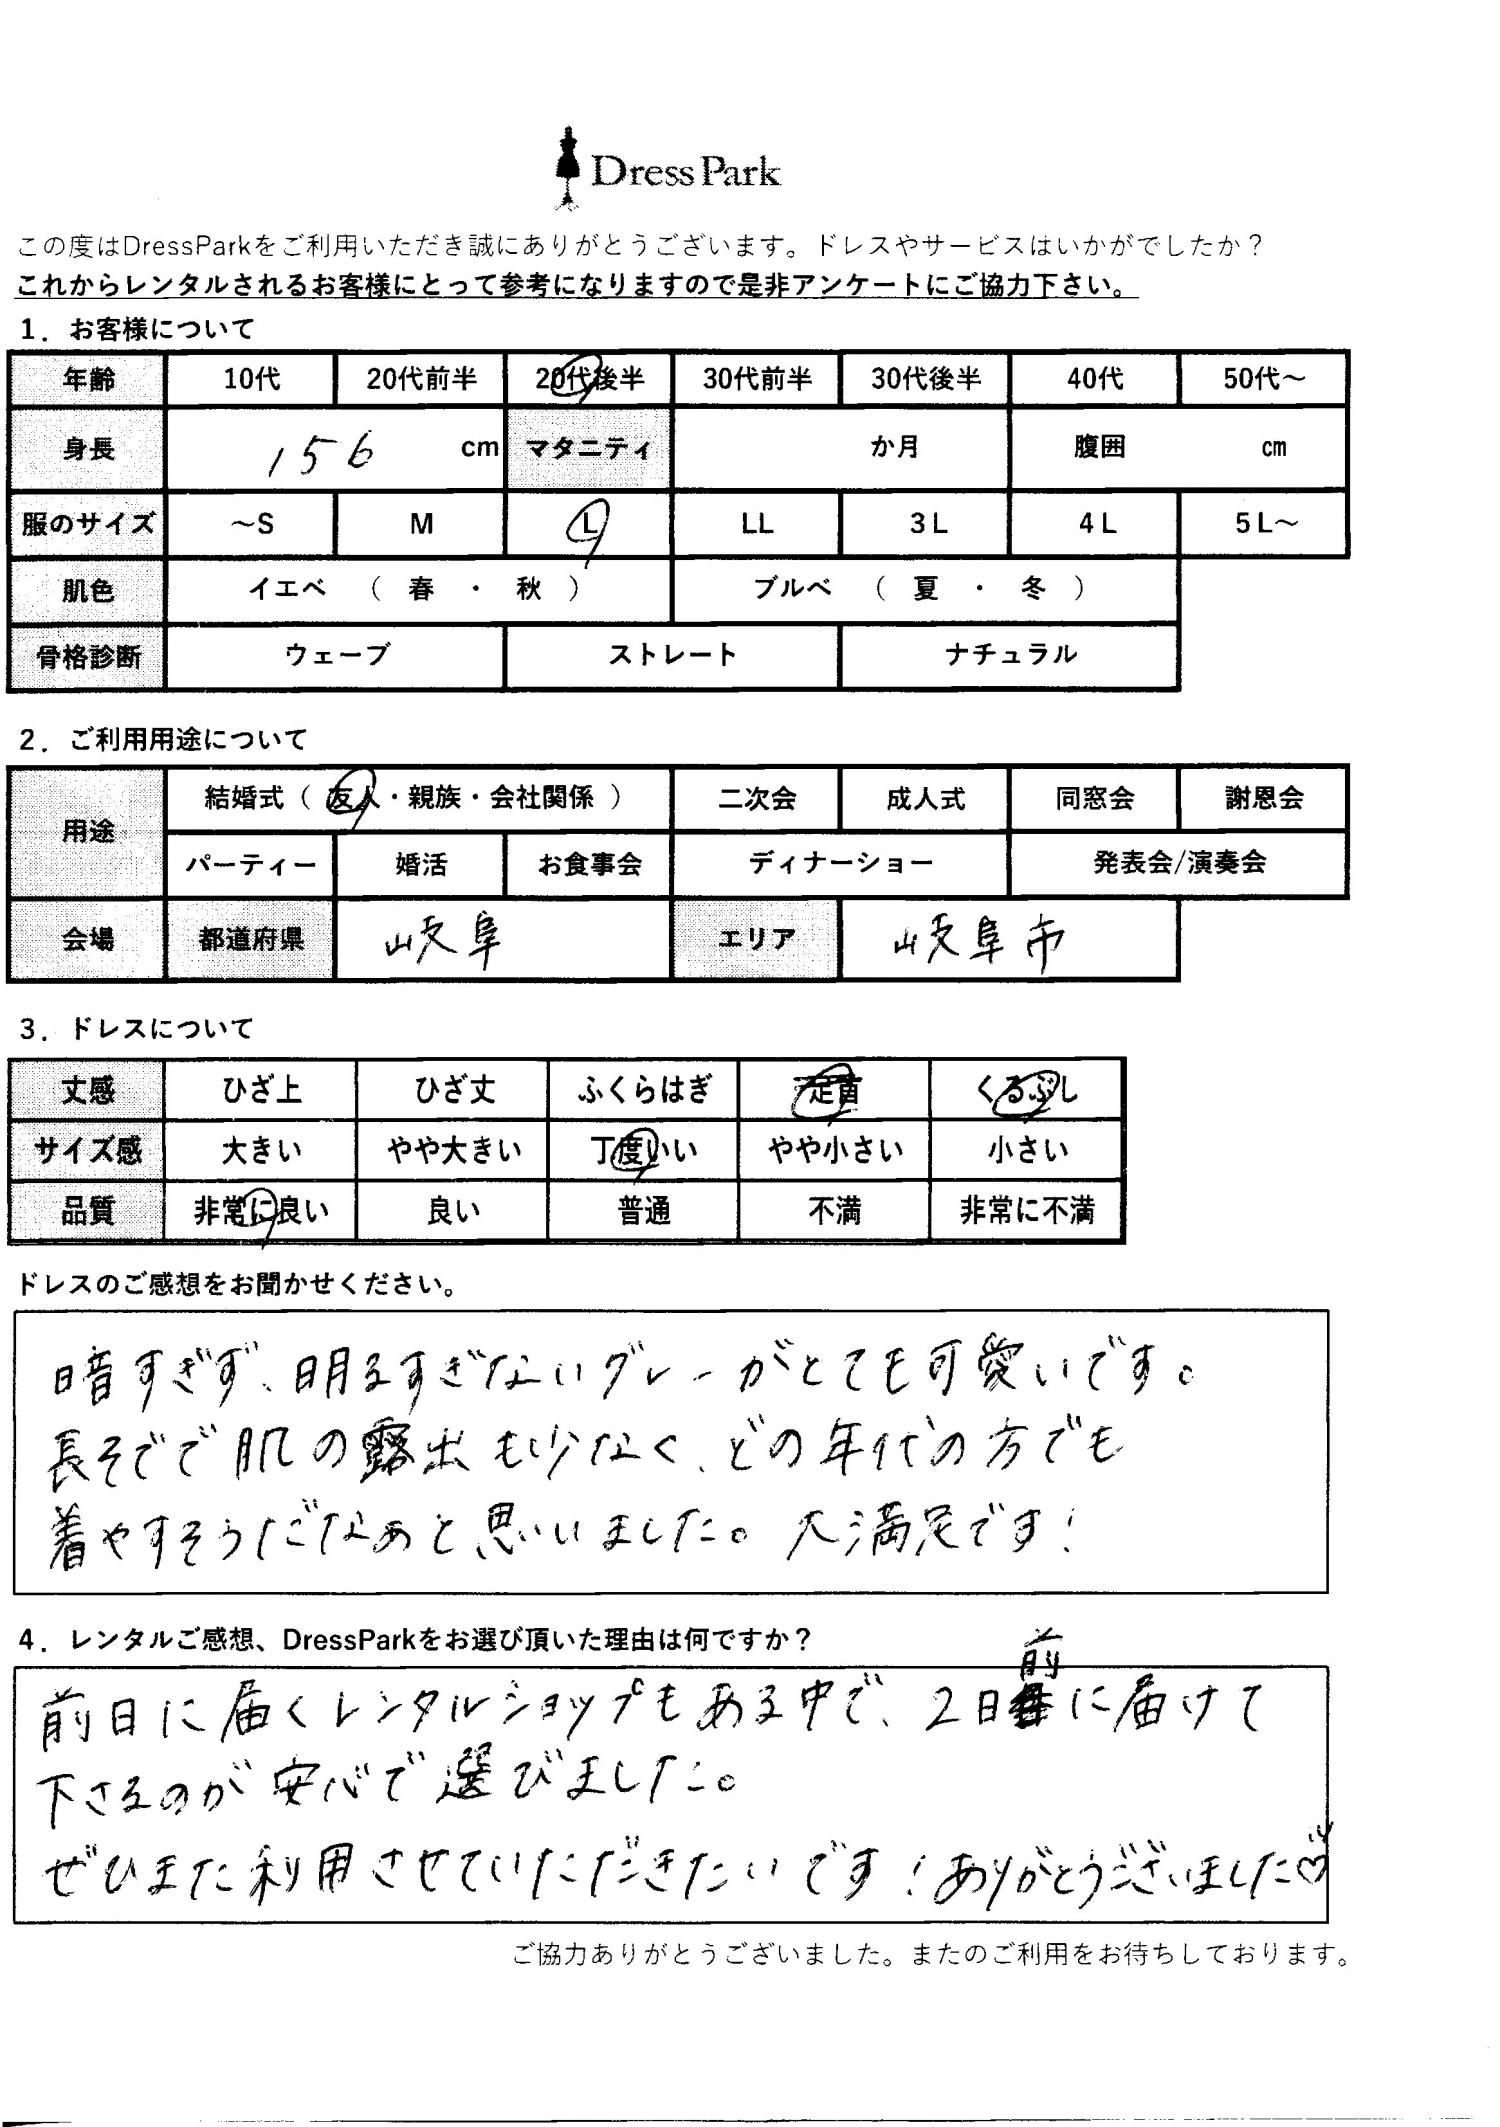 Dress Park
この度はDressParkをご利用いただき誠にありがとうございます。ドレスやサービスはいかがでしたか？
これからレンタルされるお客様にとって参考になりますので是非アンケートにご協力下さい。
1．お客様について
年齢 10代 20代前半 20代後半 30代前半 30代後半 40代 50代～
身長 156 cm マタニティ か月 腹囲 cm
服のサイズ ～S M L LL 3L 4L 5L～
肌色 イエベ （ 春 ・ 秋 ） ブルベ （ 夏 ・ 冬 ）
骨格診断 ウェーブ ストレート ナチュラル
2．ご利用用途について
用途 結婚式（ 友人・親族・会社関係 ） 二次会 成人式 同窓会 謝恩会
パーティー 婚活 お食事会 ディナーショー 発表会/演奏会
会場 都道府県 岐阜 エリア 岐阜市
3．ドレスについて
丈感 ひざ上 ひざ丈 ふくらはぎ 足首 くるぶし
サイズ感 大きい やや大きい 丁度いい やや小さい 小さい
品質 非常に良い 良い 普通 不満 非常に不満
ドレスのご感想をお聞かせください。
暗すぎず、明るすぎないグレーがとても可愛いです。
長そでで肌の露出も少なく、どの年代の方でも
着やすそうだなぁと思いました。大満足です！
4．レンタルご感想、DressParkをお選び頂いた理由は何ですか？
前日に届くレンタルショップもある中で、2日前に届けて
下さるのが安心で選びました。
ぜひまた利用させていただきたいです！ありがとうございました♡
ご協力ありがとうございました。またのご利用をお待ちしております。